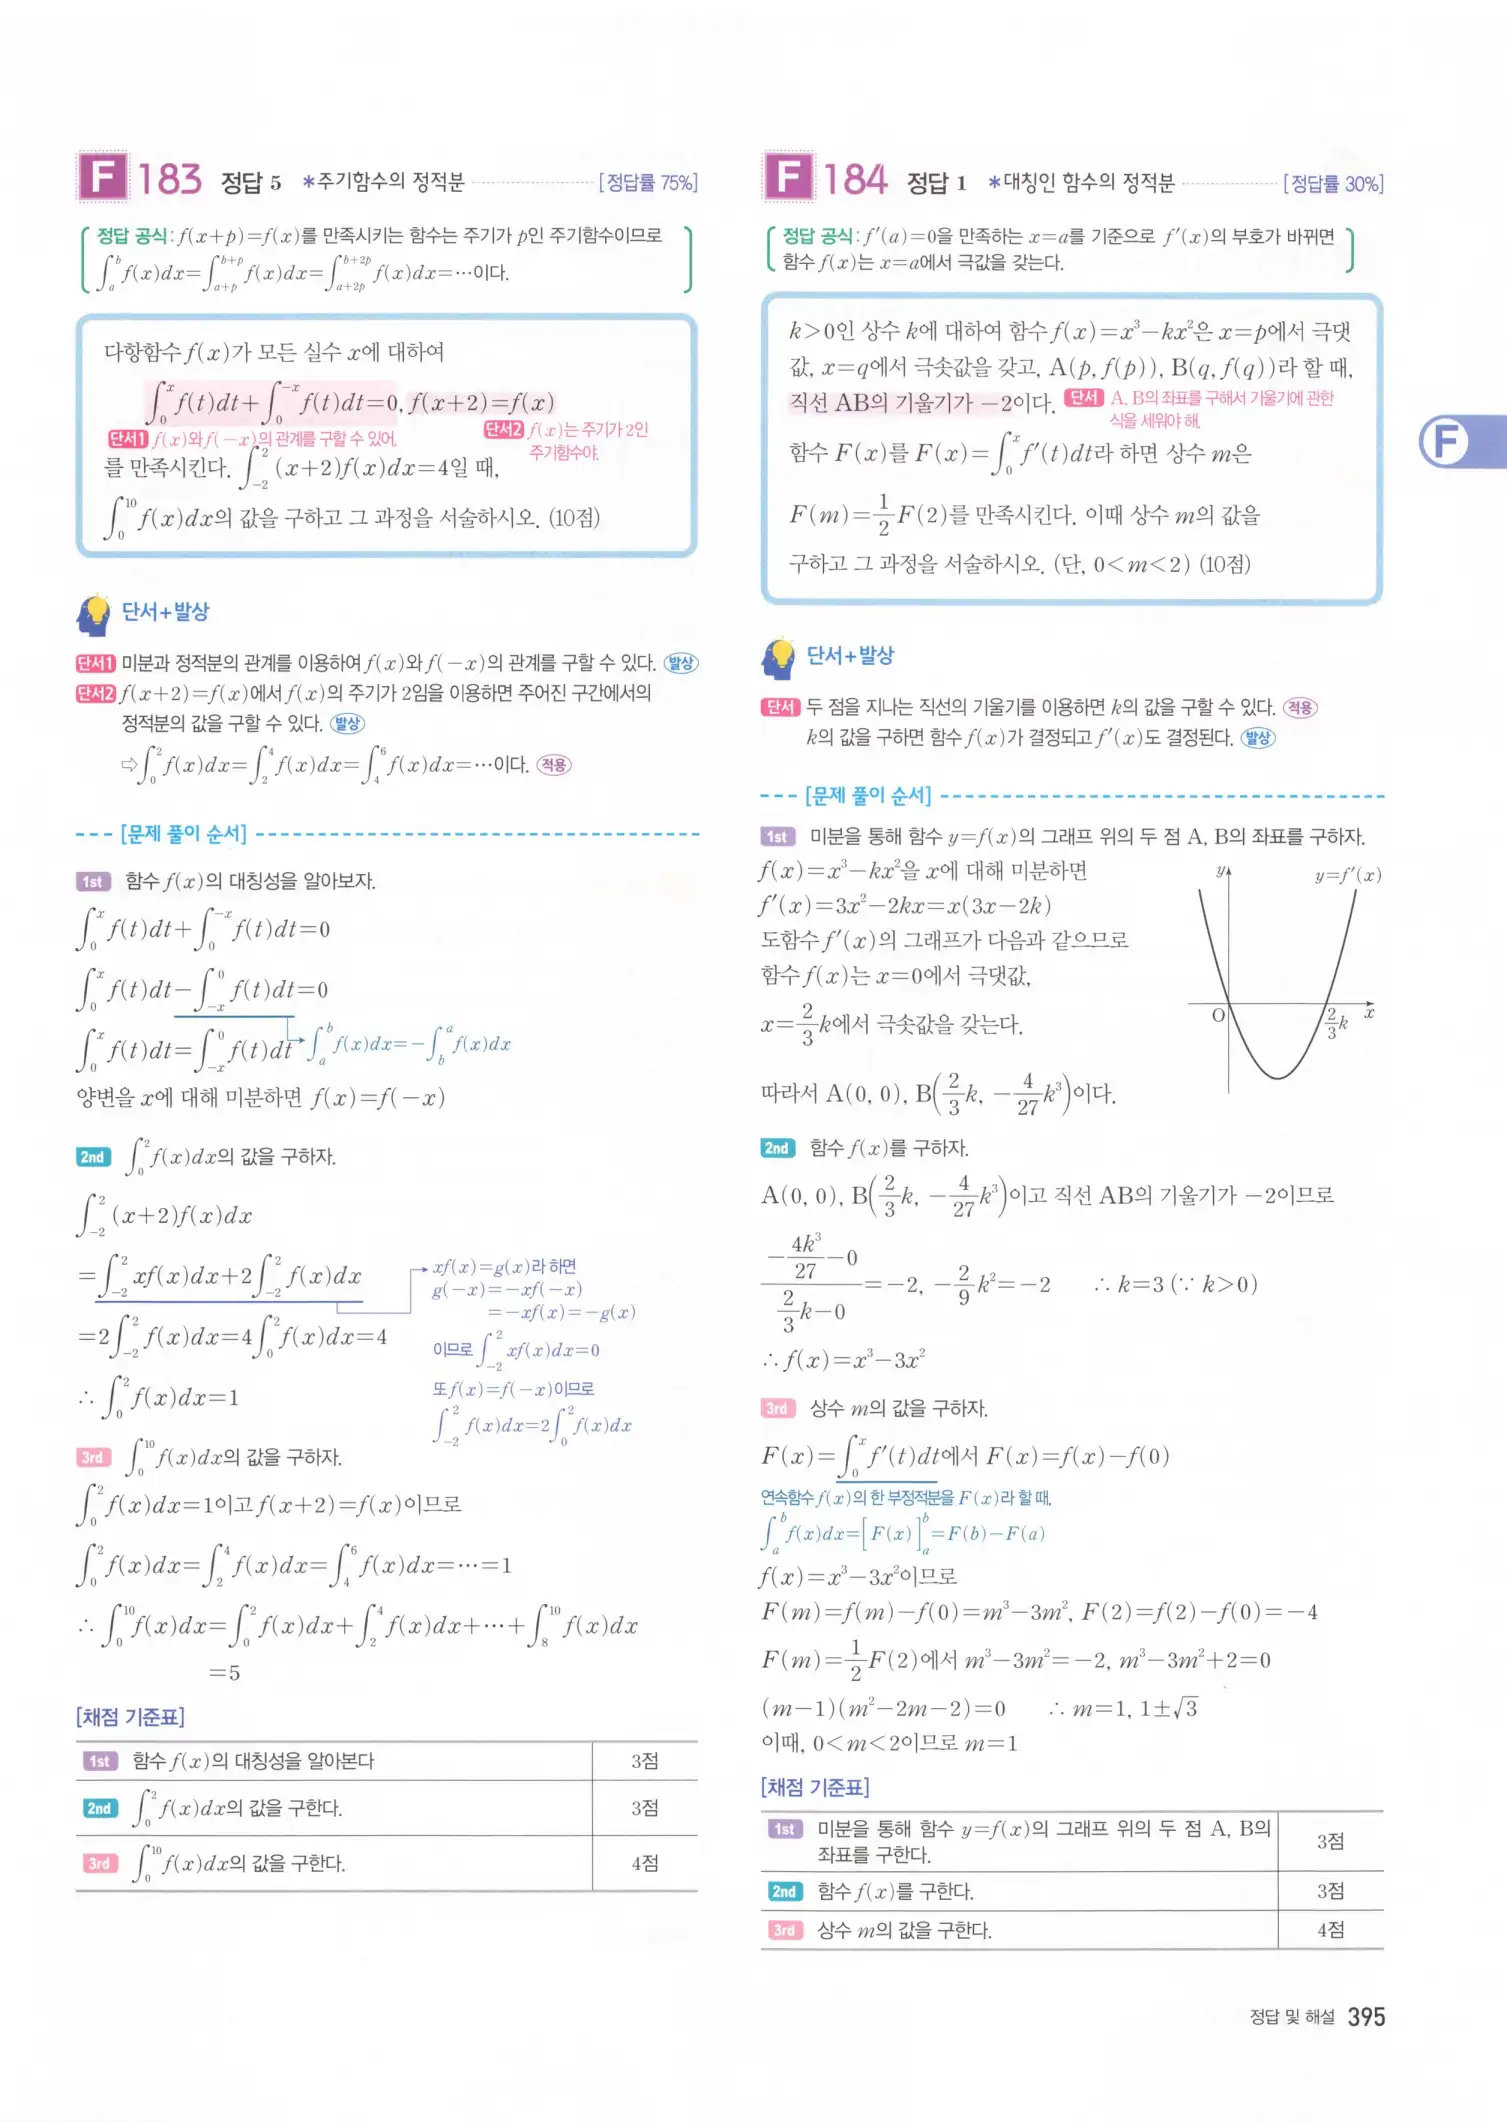 F 183 정답 5 *주기함수의 정적분 [정답률 75%]
정답 공식: f(x+p)=f(x)를 만족시키는 함수는 주기가 p인 주기함수이므로
∫_a^b f(x)dx=∫_{a+p}^{b+p} f(x)dx=∫_{a+2p}^{b+2p} f(x)dx=⋯이다.
다항함수 f(x)가 모든 실수 x에 대하여
∫_0^x f(t)dt+∫_0^{-x} f(t)dt=0, f(x+2)=f(x)
단서1 f(x)와 f(-x)의 관계를 구할 수 있어.
단서2 f(x)는 주기가 2인
주기함수야.
를 만족시킨다. ∫_{-2}^2 (x+2)f(x)dx=4일 때,
∫_0^{10} f(x)dx의 값을 구하고 그 과정을 서술하시오. (10점)
단서+발상
단서1 미분과 정적분의 관계를 이용하여 f(x)와 f(-x)의 관계를 구할 수 있다. 발상
단서2 f(x+2)=f(x)에서 f(x)의 주기가 2임을 이용하면 주어진 구간에서의
정적분의 값을 구할 수 있다. 발상
⇨∫_0^2 f(x)dx=∫_2^4 f(x)dx=∫_4^6 f(x)dx=⋯이다. 적용
[문제 풀이 순서]
1st 함수 f(x)의 대칭성을 알아보자.
∫_0^x f(t)dt+∫_0^{-x} f(t)dt=0
∫_0^x f(t)dt-∫_{-x}^0 f(t)dt=0
∫_0^x f(t)dt=∫_{-x}^0 f(t)dt ∫_a^b f(x)dx=-∫_b^a f(x)dx
양변을 x에 대해 미분하면 f(x)=f(-x)
2nd ∫_0^2 f(x)dx의 값을 구하자.
∫_{-2}^2 (x+2)f(x)dx
=∫_{-2}^2 xf(x)dx+2∫_{-2}^2 f(x)dx
=2∫_{-2}^2 f(x)dx=4∫_0^2 f(x)dx=4
∴ ∫_0^2 f(x)dx=1
xf(x)=g(x)라 하면
g(-x)=-xf(-x)
=-xf(x)=-g(x)
이므로 ∫_{-2}^2 xf(x)dx=0
또 f(x)=f(-x)이므로
∫_{-2}^2 f(x)dx=2∫_0^2 f(x)dx
3rd ∫_0^{10} f(x)dx의 값을 구하자.
∫_0^2 f(x)dx=1이고 f(x+2)=f(x)이므로
∫_0^2 f(x)dx=∫_2^4 f(x)dx=∫_4^6 f(x)dx=⋯=1
∴ ∫_0^{10} f(x)dx=∫_0^2 f(x)dx+∫_2^4 f(x)dx+⋯+∫_8^{10} f(x)dx
=5
[채점 기준표]
1st 함수 f(x)의 대칭성을 알아본다 3점
2nd ∫_0^2 f(x)dx의 값을 구한다. 3점
3rd ∫_0^{10} f(x)dx의 값을 구한다. 4점
F 184 정답 1 *대칭인 함수의 정적분 [정답률 30%]
정답 공식: f′(a)=0을 만족하는 x=a를 기준으로 f′(x)의 부호가 바뀌면
함수 f(x)는 x=a에서 극값을 갖는다.
k>0인 상수 k에 대하여 함수 f(x)=x³-kx²은 x=p에서 극댓
값, x=q에서 극솟값을 갖고, A(p, f(p)), B(q, f(q))라 할 때,
직선 AB의 기울기가 -2이다. 단서 A, B의 좌표를 구해서 기울기에 관한
식을 세워야 해.
함수 F(x)를 F(x)=∫_0^x f′(t)dt라 하면 상수 m은
F(m)=1/2 F(2)를 만족시킨다. 이때 상수 m의 값을
구하고 그 과정을 서술하시오. (단, 0<m<2) (10점)
단서+발상
단서 두 점을 지나는 직선의 기울기를 이용하면 k의 값을 구할 수 있다. 적용
k의 값을 구하면 함수 f(x)가 결정되고 f′(x)도 결정된다. 발상
[문제 풀이 순서]
1st 미분을 통해 함수 y=f(x)의 그래프 위의 두 점 A, B의 좌표를 구하자.
f(x)=x³-kx²을 x에 대해 미분하면
f′(x)=3x²-2kx=x(3x-2k)
도함수 f′(x)의 그래프가 다음과 같으므로
함수 f(x)는 x=0에서 극댓값,
x=2/3 k에서 극솟값을 갖는다.
y y=f′(x)
O 2/3 k x
따라서 A(0, 0), B(2/3 k, -4/27 k³)이다.
2nd 함수 f(x)를 구하자.
A(0, 0), B(2/3 k, -4/27 k³)이고 직선 AB의 기울기가 -2이므로
(-4k³/27-0)/(2/3 k-0)=-2, -2/9 k²=-2 ∴ k=3 (∵ k>0)
∴ f(x)=x³-3x²
3rd 상수 m의 값을 구하자.
F(x)=∫_0^x f′(t)dt에서 F(x)=f(x)-f(0)
연속함수 f(x)의 한 부정적분을 F(x)라 할 때,
∫_a^b f(x)dx=[F(x)]_a^b=F(b)-F(a)
f(x)=x³-3x²이므로
F(m)=f(m)-f(0)=m³-3m², F(2)=f(2)-f(0)=-4
F(m)=1/2 F(2)에서 m³-3m²=-2, m³-3m²+2=0
(m-1)(m²-2m-2)=0 ∴ m=1, 1±√3
이때, 0<m<2이므로 m=1
[채점 기준표]
1st 미분을 통해 함수 y=f(x)의 그래프 위의 두 점 A, B의
좌표를 구한다. 3점
2nd 함수 f(x)를 구한다. 3점
3rd 상수 m의 값을 구한다. 4점
F
정답 및 해설 395